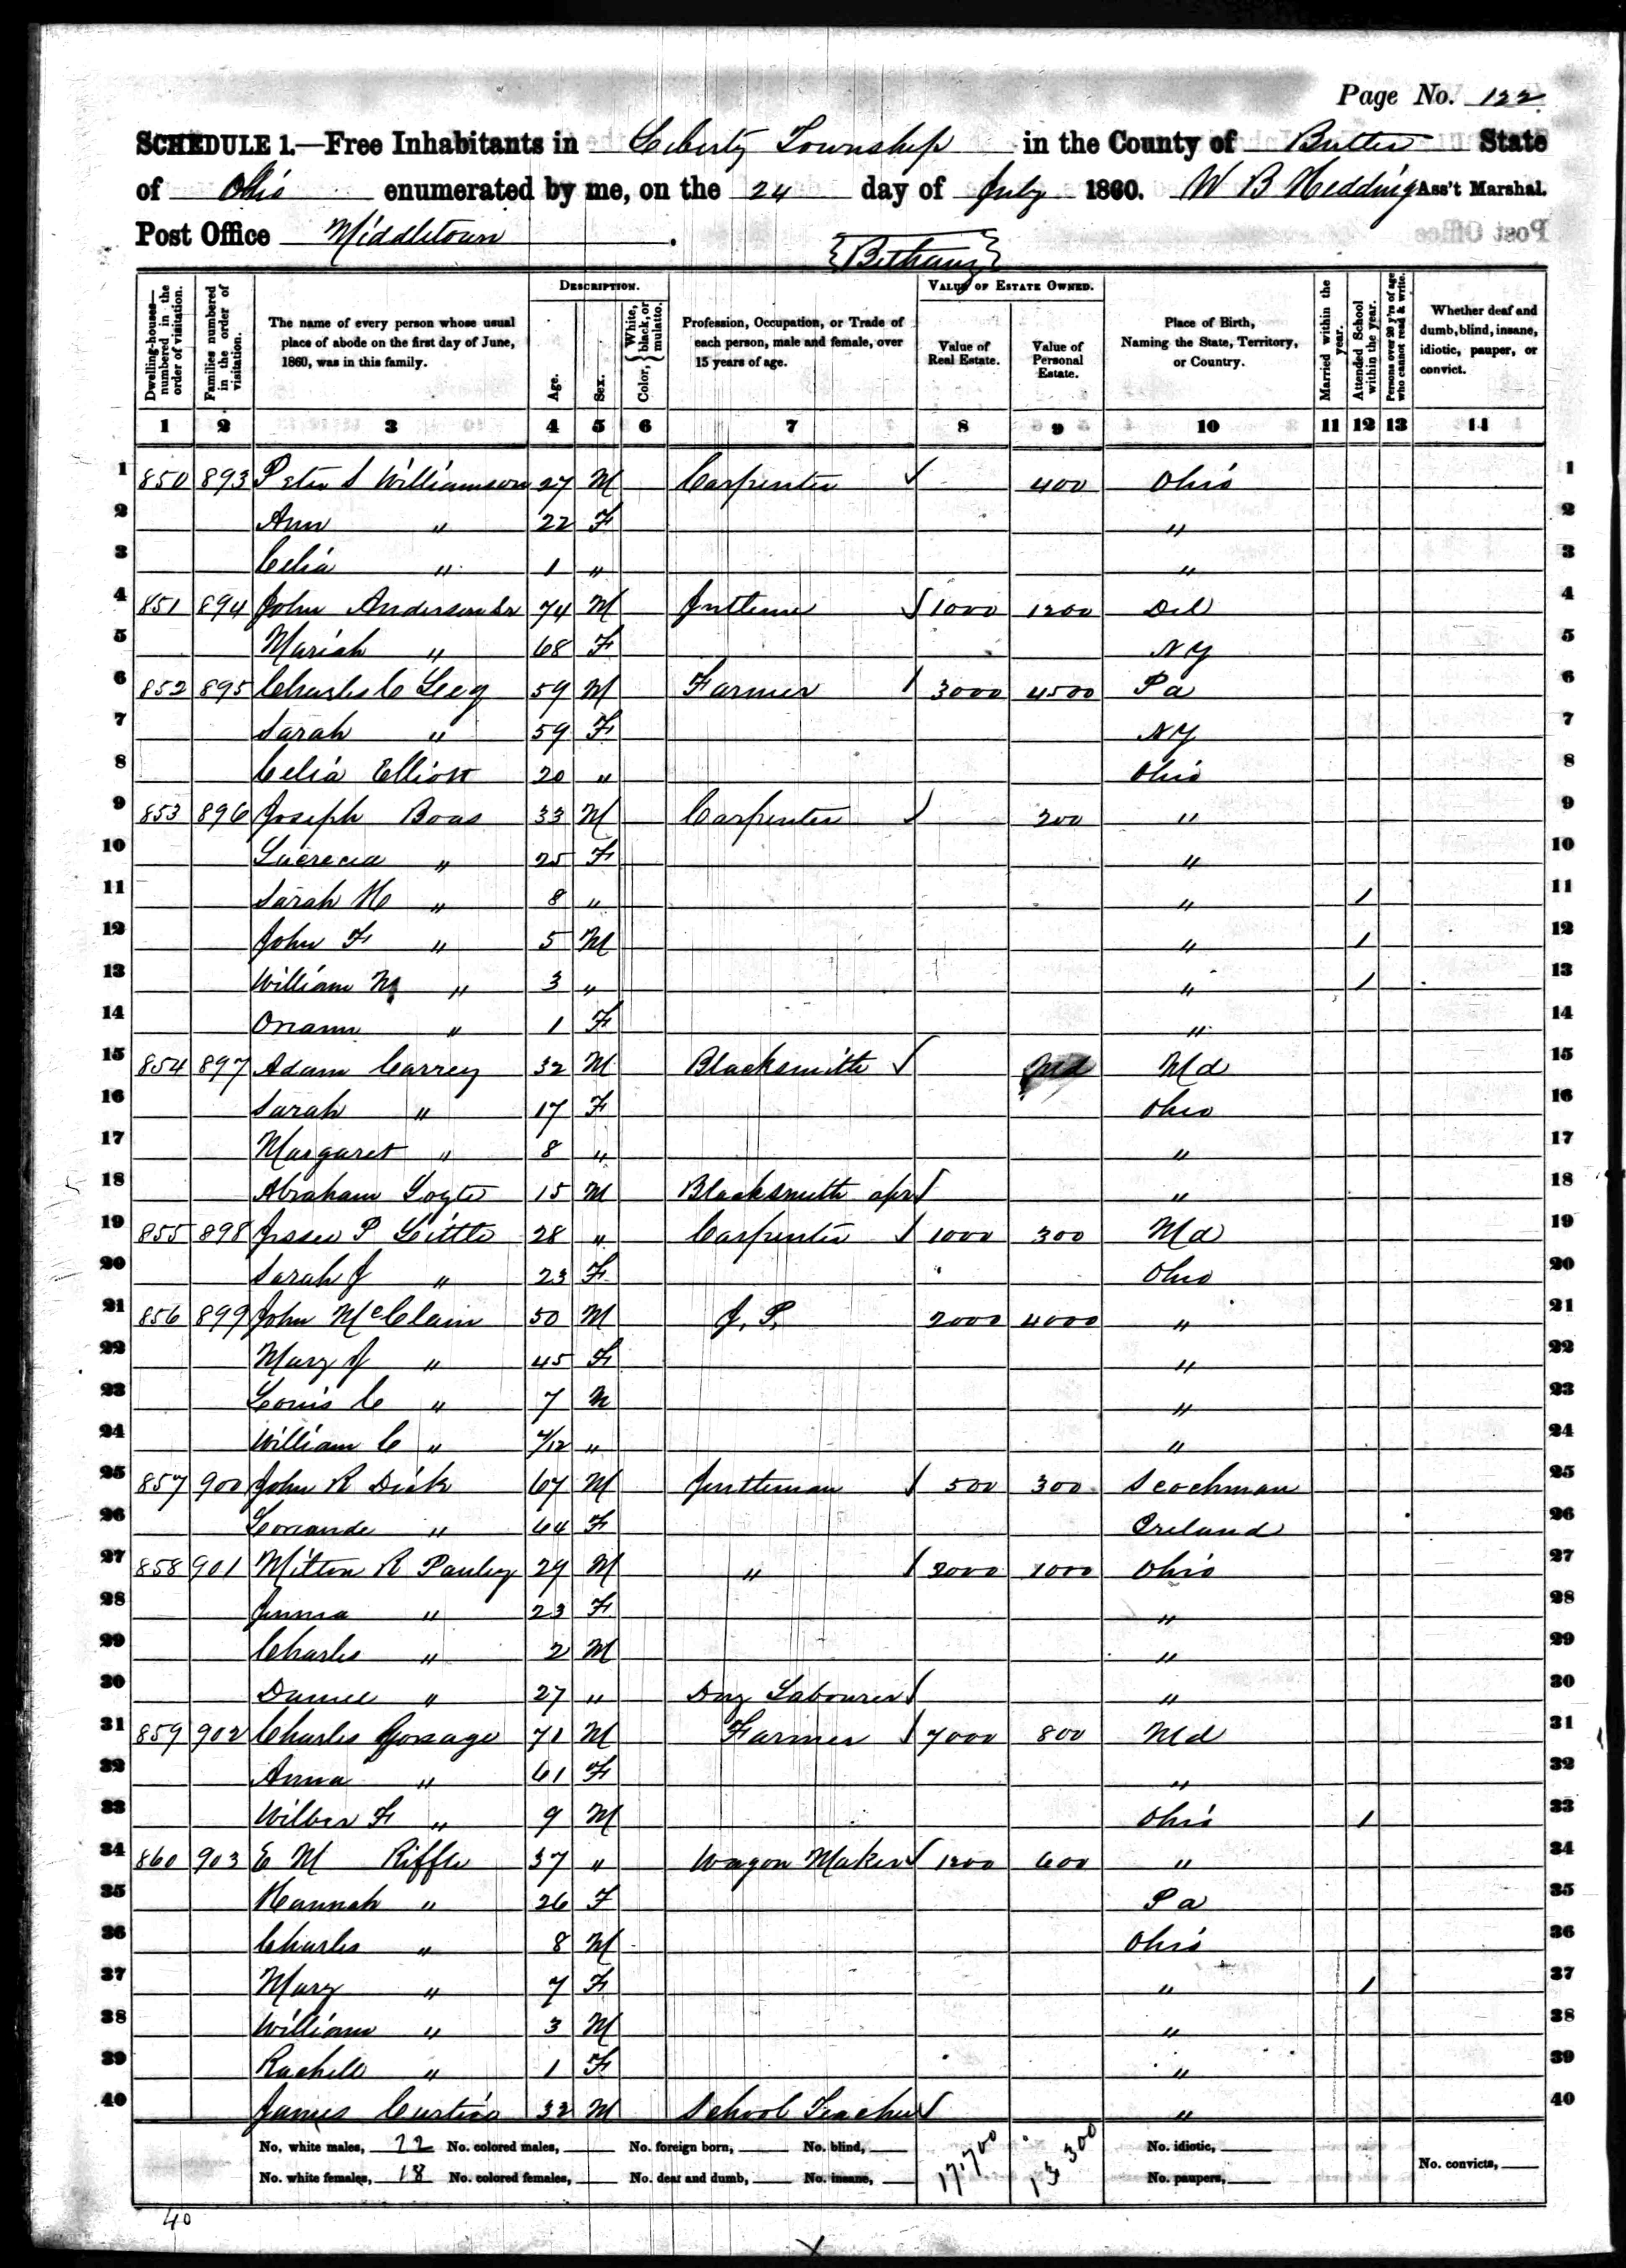 Page No. 122
SCHEDULE 1.—Free Inhabitants in Liberty Township in the County of Butler State
of Ohio enumerated by me, on the 24 day of July 1860. W B Hedding Ass't Marshal.
Post Office Middletown
{Bethany}
Dwelling-houses—numbered in the order of visitation.
Families numbered in the order of visitation.
The name of every person whose usual place of abode on the first day of June, 1860, was in this family.
DESCRIPTION.
Age.
Sex.
Color, {White, black, or mulatto.
Profession, Occupation, or Trade of each person, male and female, over 15 years of age.
VALUE OF ESTATE OWNED.
Value of Real Estate.
Value of Personal Estate.
Place of Birth, Naming the State, Territory, or Country.
Married within the year.
Attended School within the year.
Persons over 20 y'rs of age who cannot read & write.
Whether deaf and dumb, blind, insane, idiotic, pauper, or convict.
1 2 3 4 5 6 7 8 9 10 11 12 13 14
1 850 893 Peter S Williamson 27 M Carpenter 400 Ohio 1
2 Ann " 22 F " 2
3 Celia " 1 " " 3
4 851 894 John Anderson Sr 74 M 1000 1200 Del 4
5 Mariah " 68 F NY 5
6 852 895 Charles C 59 M Farmer 3000 4500 Pa 6
7 Sarah " 59 F NY 7
8 Celia Elliott 20 " Ohio 8
9 853 896 Joseph Boas 33 M Carpenter 200 " 9
10 Lucrecia " 25 F " 10
11 Sarah H " 8 " " / 11
12 John F " 5 M " / 12
13 William M " 3 " " / 13
14 " 1 F " 14
15 854 897 Adam Carrey 32 M Blacksmith Md Md 15
16 Sarah " 17 F Ohio 16
17 Margaret " 8 " " 17
18 Abraham 15 M Blacksmith apr " 18
19 855 898 Jesse P Little 28 " Carpenter 1000 300 Md 19
20 Sarah J " 23 F Ohio 20
21 856 899 John McClain 50 M J. P. 2000 4000 " 21
22 Mary J " 45 F " 22
23 Louis C " 7 M " 23
24 William C " " " 24
25 857 900 John R Dick 67 M Jentleman 500 300 Scochman 25
26 " 64 F Ireland 26
27 858 901 Milton R Pauley 29 M " 2000 1000 Ohio 27
28 " 23 F " 28
29 Charles " 2 M " 29
30 Daniel " 27 " Day Labourer " 30
31 859 902 Charles Gorsage 71 M Farmer 7000 800 Md 31
32 Anna " 61 F " 32
33 Wilber F " 9 M Ohio / 33
34 860 903 E M Riffle 37 " Wagon Maker 1200 600 " 34
35 Hannah " 26 F Pa 35
36 Charles " 8 M Ohio 36
37 Mary " 7 F " / 37
38 William " 3 M " 38
39 Rachell " 1 F " 39
40 James Curtis 32 M School Teacher " 40
No. white males, 22 No. colored males, No. foreign born, No. blind, 17,700 13,300 No. idiotic,
No. white females, 18 No. colored females, No. deaf and dumb, No. insane, No. paupers, No. convicts,
40